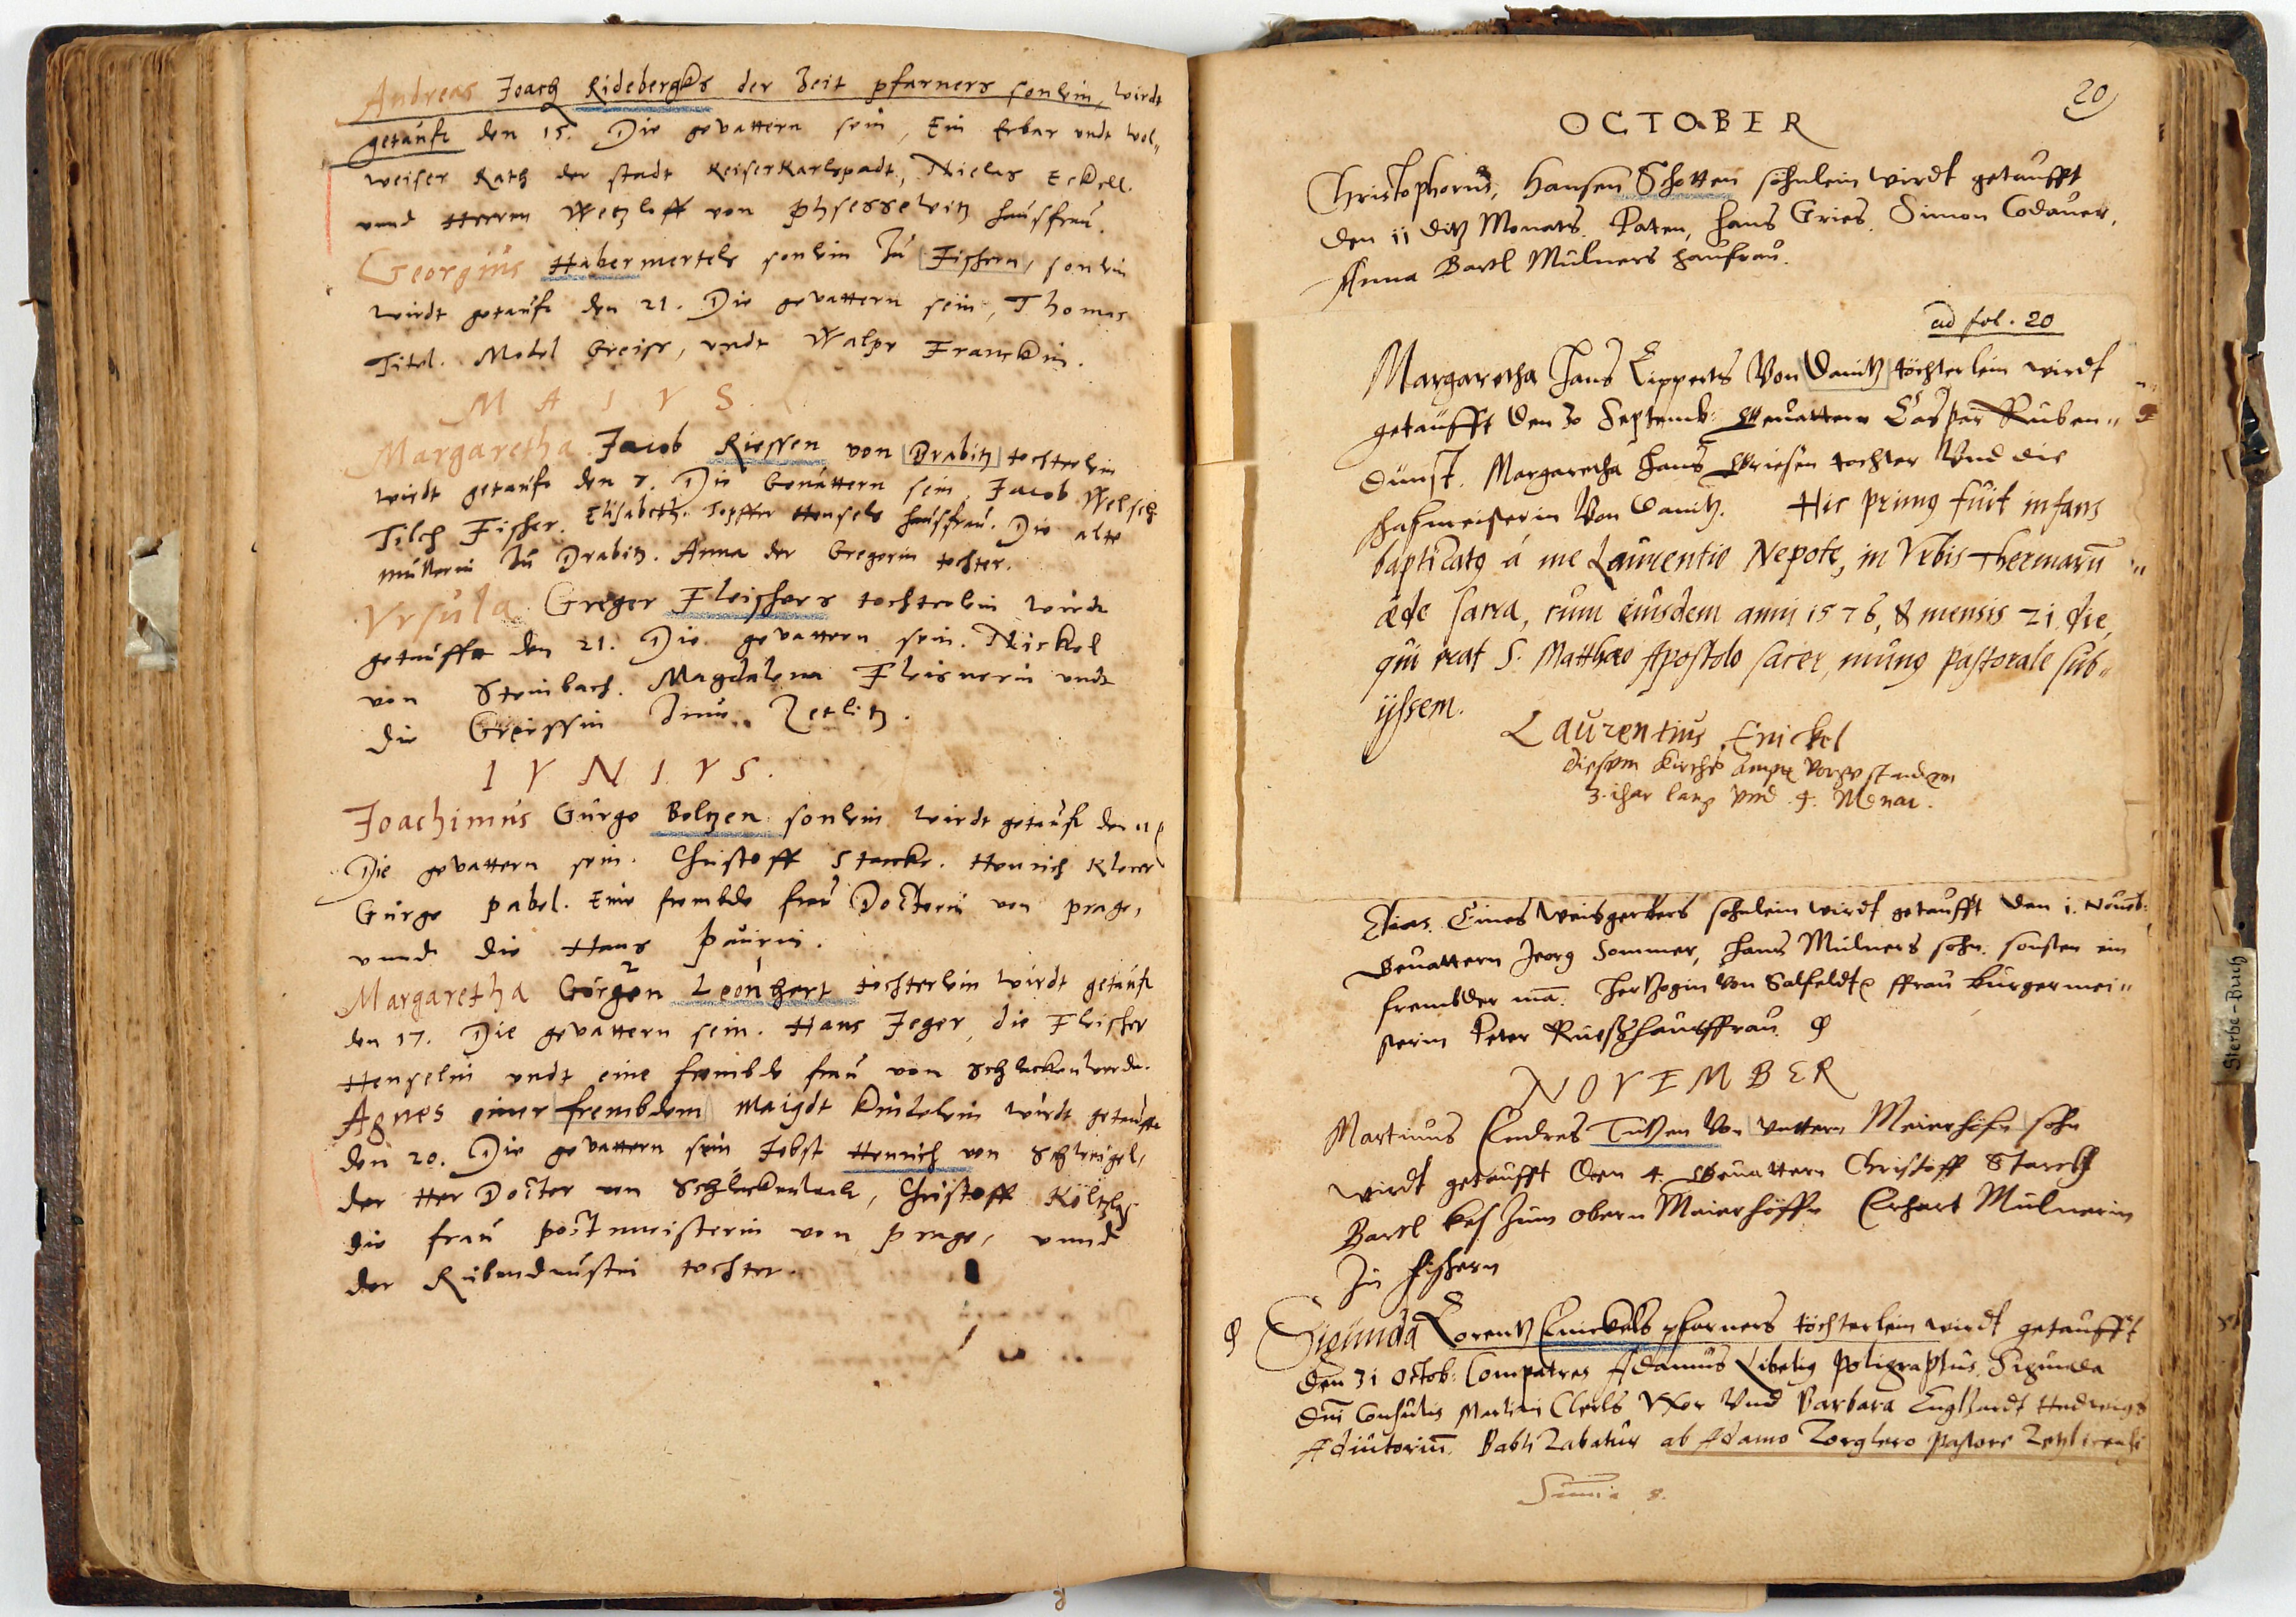 Andreas Joach Ridebergks der Zeit pfarners sonlein, wirdt
getauft den 15. Die gevattern sein, Ein Erbar undt wol„
weiser Rath der stadt KeiserKarlspadt, Niclas Eckell.
unnd Herrn Wetzloff von hausfrau.
Georgius Habermertels sonlein Zu Fischern, sonlein
wirdt getauft den 21. Die gevattern sein, Thomas
Titel. Model Greiss, undt Walpr Franckin.
MAIVS.
Margaretha Jacob Riessen von Drabitz tochterlein
wirdt getauft den 7. Die Gevattern sein Jacob Welsch
Tilch Fischer. Elisabeth. Topffer Hensels hausfrau. Die alte
mullerin Zu Drabitz. Anna der Gregerin tochter.
Vrsula Greger Fleischers tochterlein wirdt
getaufft den 21. Die gevattern sein. Nickel
von Steinbach. Magdalena Fleisnerin undt
die Greissin Zetlitz.
IVNIVS.
Joachimus Gürge Beltzen sonlein wirdt getauft den 11
Die gevattern sein. Christoff Starcke. Henrich
Gürge pabel. Eine frembde frau Doctorin von prage,
unnd die Hans paurin.
Margaretha Görgen Leonhert tochterlein wirdt getauft
den 17. Die gevattern sein. Hans Jeger, die Fleischer
Henselin undt eine frembde frau von Schlackenwerde.
Agnes einer frembdem Maigdt kindelein wirdt getaufft
den 20. Die gevattern sein Jobst Henrich von
der Her Doctor von Schlackenwalt, Christoff
die frau postmeisterin von prage, unnd
der Rubendunstin tochter.
20
OCTOBER
Christophorus, Hansen Schotten söhnlein wirdt getaufft
den 11 ditz Monats. Paten, Hans Gries. Simon Codauer,
Anna Bartl Mulners hausfrau.
ad fol. 20
Margaretha Hans Lipperts Von Danitz töchterlein wirdt
getaufft den 30 Septemb: Gevattern Casper Ruben„
dunst. Margaretha Hans Griesen tochter Und die
schafmeisterin Von Danitz. Hic primus fuit infans
baptizatus á me Laurentio Nepote, in Vrbis Thermarū
æde sacra, cum eiusdem anni 1576, & mensis 21. die,
qui erat S. Matthæo Apostolo sacer, munus pastorale sub„
ijssem.
Laurentius Enickel
diesem kirchē vorgestanden
3. ihar lang vnd 4. Monat.
Elias. Eines Weisgerbers söhnlein wirdt getaufft den 1. Novēb:
Gevattern Jeorg Sommer, Hans Mulners sohn. sonsten ein
frembder mā. Hertzogin Von Salfeldt ffrau Burgermei„
sterin Peter hausffrau
NOVEMBER
Martinus Endres Von Untern Meierhöfe sohn
wirdt getaufft den 4. Gevattern Christoff Starck
Bartl Zum obern Meierhöffe Erhart Mulnerin
Zu fischern
Sigunda Lorentz Enickels pfarners töchterlein wirdt getaufft
den 31 Octob: Compatres Adamus Libelius Poligraphus. Sigunda
Dni Consulis Martini Vxor Und Barbara Englhardt Hedwigs
Adiutoriū. Babtizabatur ab Adamo Zorglero Pastore
Summa 8.
Sterbe-Buch